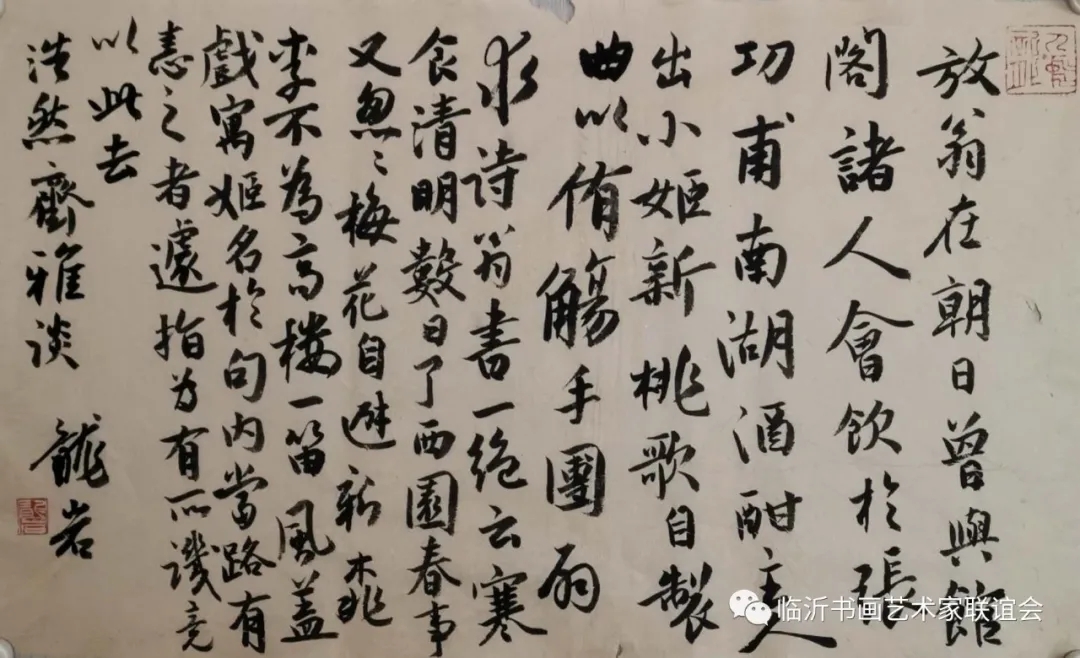 放翁在朝日曾與館
閣諸人會飲於張
功甫南湖酒酣主人
出小姬新桃歌自製
曲以侑觴手團扇
求詩翁書一绝云寒
食清明數日了西園春事
又忽〻梅花自避新桃
李不為高樓一笛風蓋
戲寓姬名於句内當路有
恚之者遽指为有所譏竟
以此去
浩然齋雅谈 龍岩
临沂书画艺术家联谊会